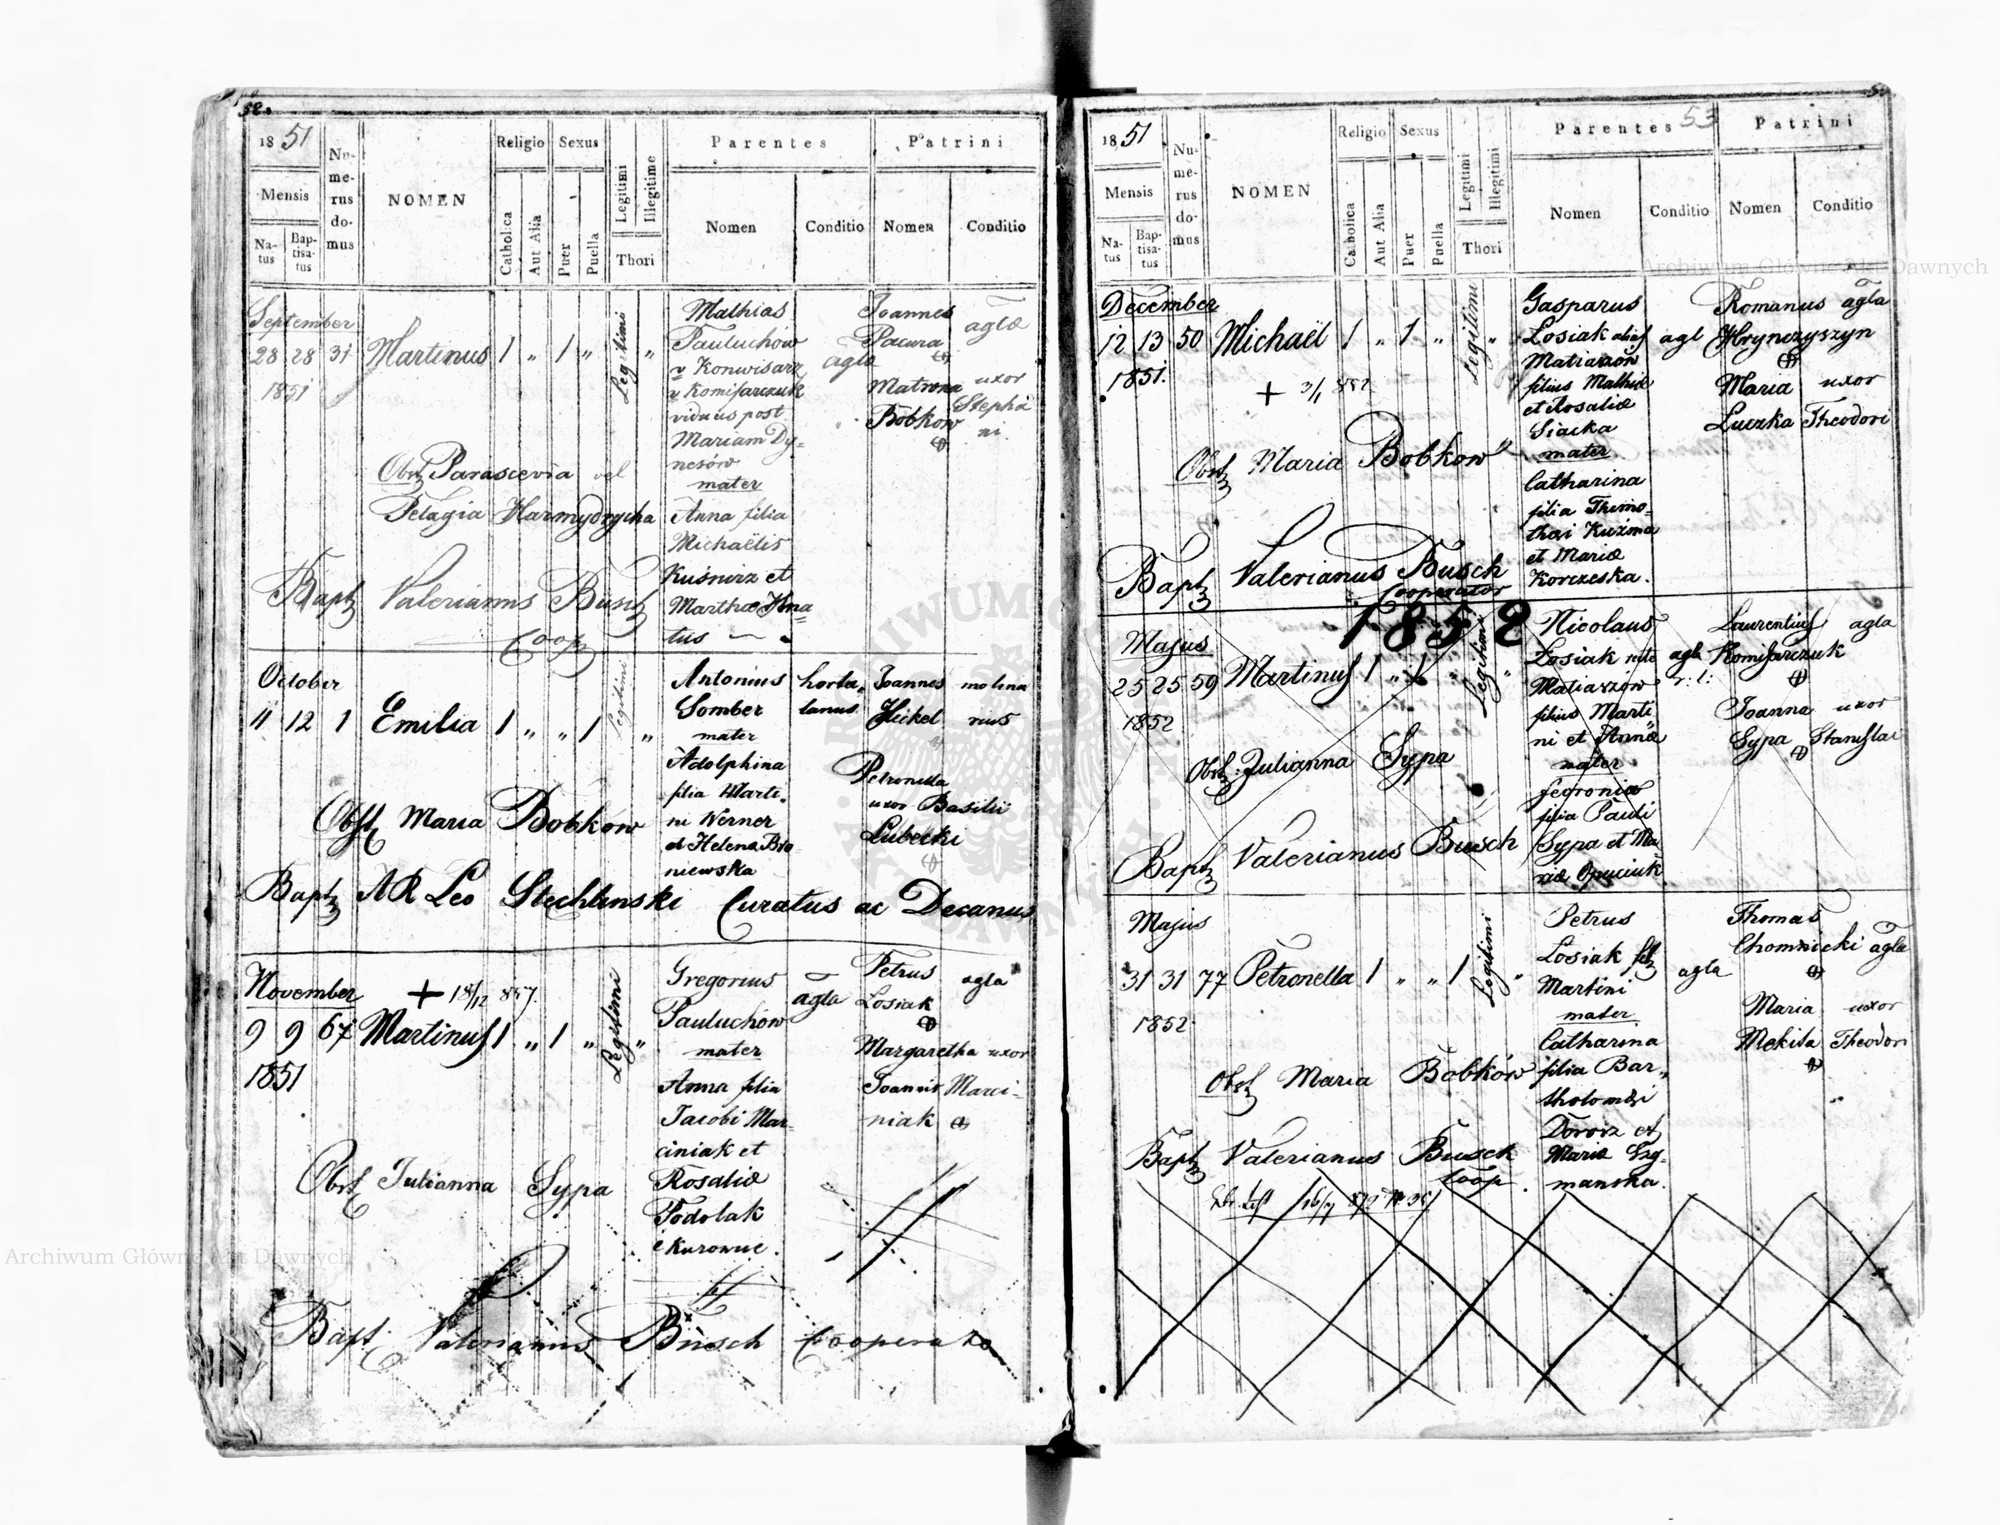 52.
1851
Mensis
Na-
tus
Bap-
tisa-
tus
Nu-
me-
rus
do-
mus
NOMEN
Religio
Catholica
Aut Alia
Sexus
Puer
Puella
Legitimi
Illegitime
Thori
Parentes
Nomen
Conditio
Patrini
Nomen
Conditio
September
28 28 31 Martinus 1 „ 1 „ Legitimi „
1851
Mathias
Pauluchów
v Konwisarz
v Komisarczuk
viduus post
Mariam Dy-
nesów
mater
Anna filia
Michaëlis
Kuśnirz et
Marthae Hna
tus
agla
Joannes
Pacura
Matrona
Bobków
aglae
uxor
Stepha
ni
Obst Parascevia vel
Pelagia Harmydrycha
Bapt Valerianus Busch
Coop
October
11 12 1 Emilia 1 „ „ 1 Legitimi „
Antonius
Somber
mater
Adolphina
filia Marti-
ni Werner
et Helena Bro-
niewska
horta-
lanus
Joannes
Hickel
Petronella
uxor Basilii
Lubecki
molina
rius
Obst Maria Bobków
Bapt AR Leo Stechlinski Curatus ac Decanus
November + 18/12 857.
9 9 67 Martinus 1 „ 1 „ Legitimi „
1851
Gregorius
Pauluchów
mater
Anna filia
Jacobi Mar-
ciniak et
Rosaliae
Podolak
agla
Petrus
Losiak
Margaretha uxor
Joannis Marci-
niak
agla
Obst Julianna Sypa
Bapt. Valerianus Busch Cooperato
53
1851
Mensis
Na-
tus
Bap-
tisa-
tus
Nu-
me-
rus
do-
mus
NOMEN
Religio
Catholica
Aut Alia
Sexus
Puer
Puella
Legitimi
Illegitimi
Thori
Parentes
Nomen
Conditio
Patrini
Nomen
Conditio
December
12 13 50 Michaël 1 „ 1 „ Legitimi „
1851.
+ 3/1 852
Gasparus
Losiak alias
Matiaszów
filius Mathiae
et Rosaliae
Siacka
mater
Catharina
filia Thimo-
thai Kuźma
et Mariae
Korczeska.
agl
Romanus agla
Hrynczyszyn
Maria uxor
Luczka Theodori
Obst Maria Bobków
Bapt Valerianus Busch
Cooperator
1852
Majus
25 25 59 Martinus 1 „ 1 „ Legitimi „
1852
Nicolaus
Losiak recte
Matiaszów
filius Marti
ni et Annae
mater
Fegronia
filia Pauli
Sypa et Ma
riae
agla
r: l:
Laurentius agla
Komisarczuk
Joanna uxor
Sypa Stanislai
Obst: Julianna Sypa
Bapt Valerianus Busch
Majus
31 31 77 Petronella 1 „ „ 1 Legitimi „
1852.
Petrus
Losiak fil
Martini
mater
Catharina
filia Bar-
tholomaei
Dorosz et
Mariae Szy-
manska.
agla
Thomas
Chomnicki agla
Maria uxor
Mekita Theodori
Obst Maria Bobków
Bapt Valerianus Busch
Coop.
Archiwum Główne Akt Dawnych
Archiwum Główne Akt Dawnych